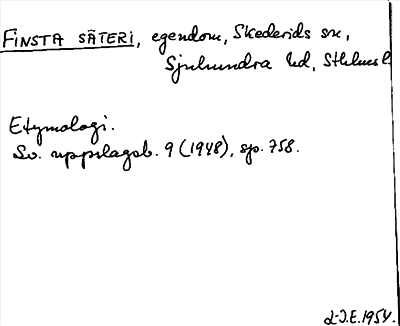 FINSTA SÄTERI, egendom, Skederids sn,
Sjuhundra hd, Sthlms l
Etymologi.
Sv. uppslagsb. 9 (1948), sp. 758.
L-I.E. 1954.